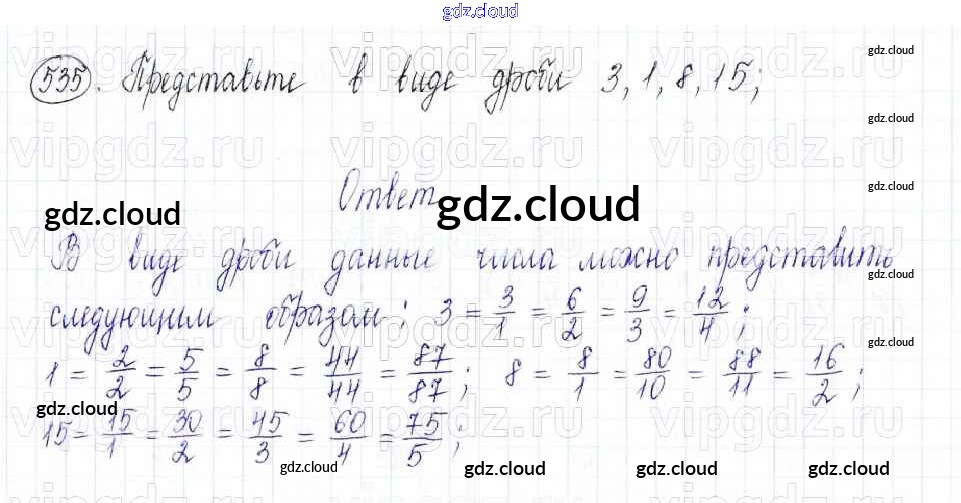 gdz.cloud
vipgdz.ru vipgdz.ru vipgdz.ru
535. Представьте в виде дроби 3, 1, 8, 15;
gdz.cloud
gdz.cloud
vipgdz.ru vipgdz.ru vipgdz.ru
Ответ
gdz.cloud gdz.cloud gdz.cloud
В виде дроби данные числа можно представить
gdz.cloud
следующим образом: 3 = 3/1 = 6/2 = 9/3 = 12/4;
gdz.cloud
1 = 2/2 = 5/5 = 8/8 = 44/44 = 87/87; 8 = 8/1 = 80/10 = 88/11 = 16/2;
gdz.cloud
15 = 15/1 = 30/2 = 45/3 = 60/4 = 75/5;
vipgdz.ru vipgdz.ru vipgdz.ru
gdz.cloud gdz.cloud gdz.cloud gdz.cloud